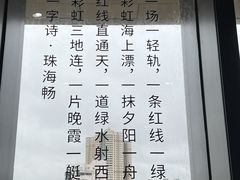 一场一轻轨，一条红线一绿
彩虹海上漂，一抹夕阳一舟
红线直通天，一道绿水射西
彩虹三地连，一片晚霞一艇
一字诗·珠海畅